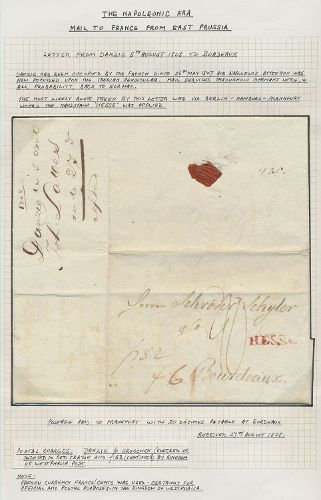 THE NAPOLEONIC ERA
MAIL TO FRANCE FROM EAST PRUSSIA
LETTER FROM DANZIG 5TH AUGUST 1808 TO BORDEAUX
DANZIG HAS BEEN OCCUPIED BY THE FRENCH SINCE 26TH MAY 1807 AND NAPOLEONS ATTENTION WAS
NOW FOCUSED UPON THE IBERIAN PENINSULAR. MAIL SERVICES THROUGHOUT GERMANY WERE, IN
ALL PROBABILITY, BACK TO NORMAL.
THE MOST LIKELY ROUTE TAKEN BY THIS LETTER WAS VIA BERLIN - HAMBURG - FRANKFURT
WHERE THE HANDSTAMP 'HESSE' WAS APPLIED.
1808
Danzig
Herrn Schröder Schyler
HESSE
Bourdeaux.
POSTAGE PAID TO FRANKFURT WITH 20 DECIMES PAYABLE AT BORDEAUX
RECEIVED 27TH AUGUST 1808.
POSTAL CHARGES: DANZIG 6 GROSCHEN
IN RED CRAYON AND 152 (CENTIMES) BY KINGDOM
OF WESTPHALIA POST.
NOTE:
FRENCH CURRENCY FRANCS/CENTS WAS USED - CERTAINLY FOR
OFFICIAL AND POSTAL PURPOSES - IN THE KINGDOM OF WESTPHALIA.